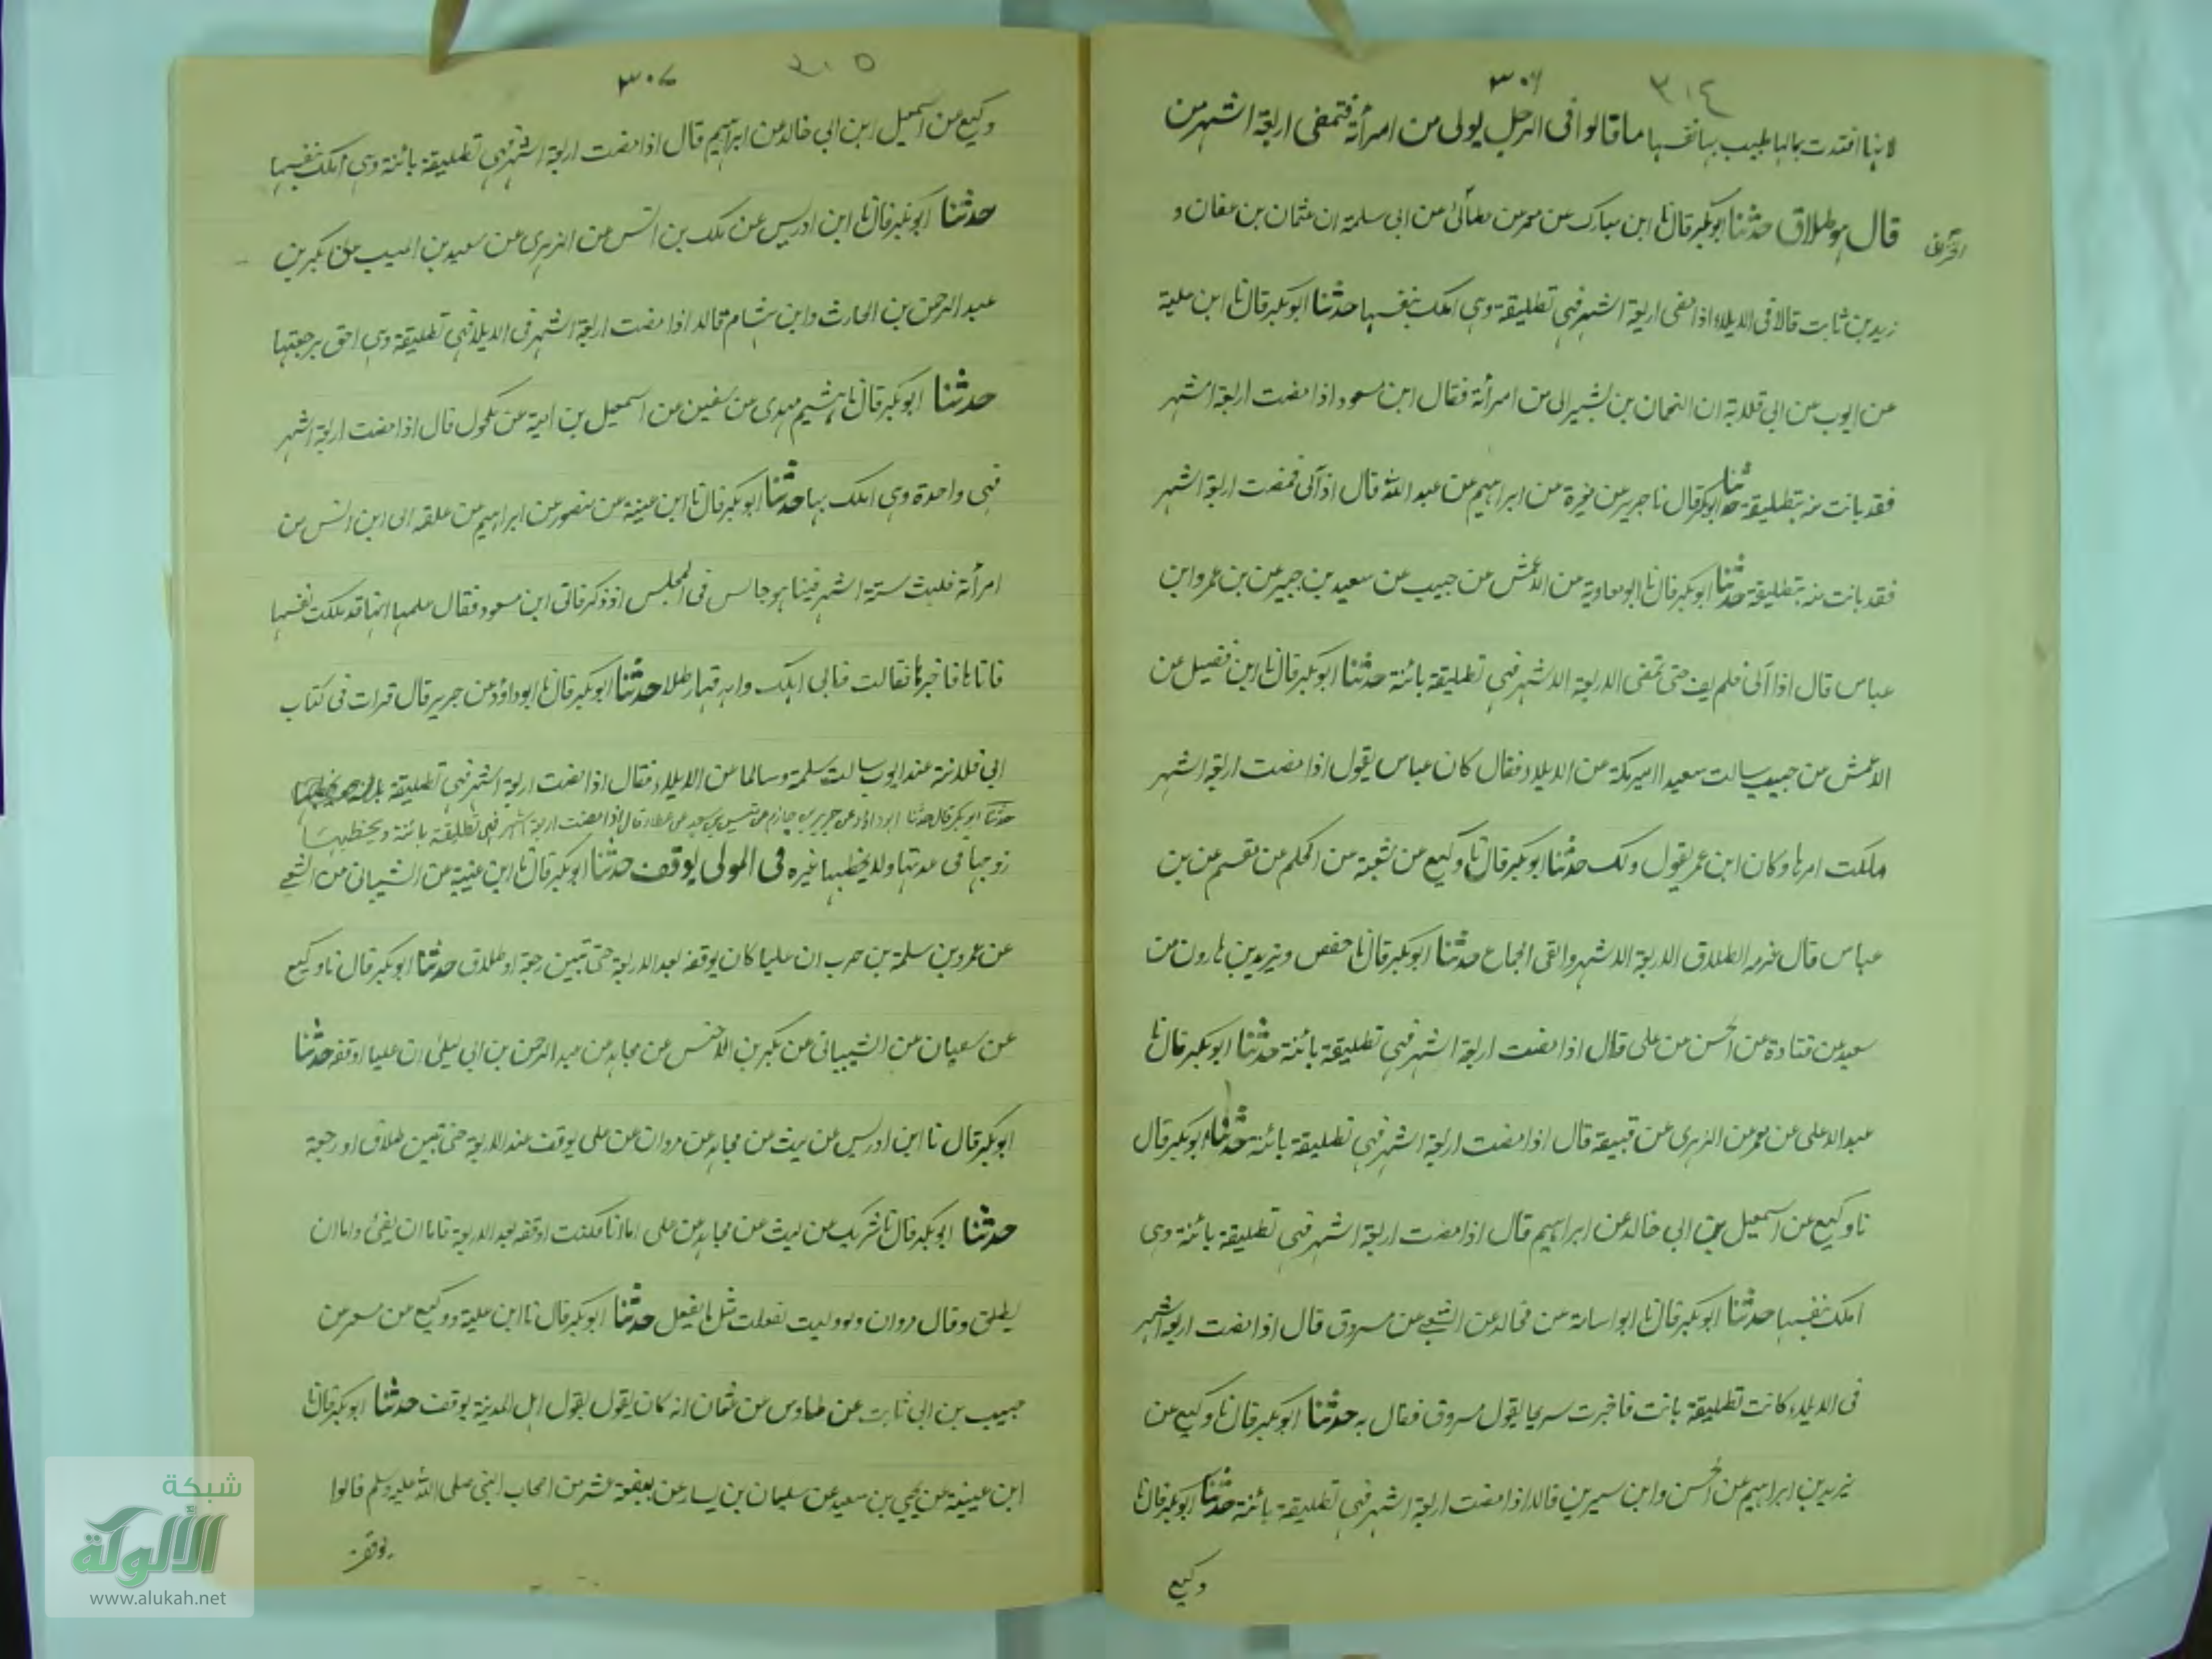 ٣٠٦ ٣١٤
لانها افتدت بمالها يطيب بها نفسها ما قالوا فى الرجل يولى من امرأته فتمضى اربعة اشهر من
قال هو طلاق حدثنا ابوبكر قال نا ابن مبارك عن معمر عن عطائ عن ابى سلمة ان عثمان بن عفان و
زيد بن ثابت قالا فى الايلاء اذا مضى اربعة اشهر فهى تطليقة وهى املك بنفسها حدثنا ابوبكر قال نا ابن علية
عن ايوب عن ابى قلابة ان النعمان بن بشير الى من امرأته فقال ابن مسعود اذا مضت اربعة اشهر
فقد بانت منه بتطليقة حدثنا ابوبكر قال نا جرير عن مغيرة عن ابراهيم عن عبد الله قال اذا آلى فمضت اربعة اشهر
فقد بانت منه بتطليقة حدثنا ابوبكر قال نا ابو معاوية عن الاعمش عن حبيب عن سعيد بن جبير عن بن عمر وابن
عباس قال اذا آلى فلم يف حتى تمضى الاربعة الاشهر فهى تطليقة بائنة حدثنا ابوبكر قال نا ابن فضيل عن
الاعمش عن حبيب سالت سعيدا امير مكة عن الايلاء فقال كان عباس يقول اذا مضت اربعة اشهر
ملكت امرها وكان ابن عمر يقول ذلك حدثنا ابوبكر قال نا وكيع عن شعبة عن الحكم عن مقسم عن بن
عباس قال عزمه الطلاق الاربعة الاشهر والفى الجماع حدثنا ابوبكر قال نا حفص ويزيد بن هارون عن
سعيد عن قتادة عن الحسن عن على قال اذا مضت اربعة اشهر فهى تطليقة بائنة حدثنا ابوبكر قال نا
عبد الاعلى عن معمر عن الزهرى عن قبيصة قال اذا مضت اربعة اشهر فهى تطليقة بائنة حدثنا ابوبكر قال
نا وكيع عن اسمعيل بن ابى خالد عن ابراهيم قال اذا مضت اربعة اشهر فهى تطليقة بائنة وهى
املك بنفسها حدثنا ابوبكر قال نا ابو اسامة عن مجالد عن الشعبى عن مسروق قال اذا مضت اربعة اشهر
فى الايلاء كانت تطليقة بانت فاخبرت سريحا يقول مسروق فقال به حدثنا ابوبكر قال نا وكيع عن
يزيد بن ابراهيم عن الحسن وابن سيرين قالا اذا مضت اربعة اشهر فهى تطليقة بائنة حدثنا ابوبكر قال نا
وكيع
٣٠٧ ٣١٥
وكيع عن اسمعيل ابن ابى خالد عن ابراهيم قال اذا مضت اربعة اشهر فهى تطليقة بائنة وهى املك بنفسها
حدثنا ابوبكر قال نا ابن ادريس عن ملك بن انس عن الزهرى عن سعيد بن المسيب بكر بن
عبد الرحمن بن الحارث وابن هشام قالا اذا مضت اربعة اشهر فى الايلاء فهى تطليقة وهى احق برجعتها
حدثنا ابوبكر قال نا هشيم مهدى عن سفين عن اسمعيل بن امية عن مكحول قال اذا مضت اربعة اشهر
فهى واحدة وهى املك بها حدثنا ابوبكر قال نا ابن عيينة عن منصور عن ابراهيم عن علقمه الى ابن انس من
امرأته فلبث ستة اشهر فبينا هو جالس فى المجلس اذ ذكر فاتى ابن مسعود فقال علمها انها قد ملكت نفسها
فاتاها فاخبرها فقالت فانى اهلك واهر قها رطلا حدثنا ابوبكر قال نا ابو داؤد عن جرير قال قرات فى كتاب
ابى قلابة عند ايوب سالت سلمة وسالما عن الايلاء فقال اذا مضت اربعة اشهر فهى تطليقة
حدثنا ابوبكر قال حدثنا ابو داؤد عن جرير بن حازم عن قيس بن سعد عن عطاء قال اذا مضت اربعة اشهر فهى تطليقة بائنة ويخطبها
زوجها فى عدتها ولا يخطبها غيره فى المولى يوقف حدثنا ابوبكر قال نا ابن عيينة عن الشيبانى عن الشعبى
عن عمرو بن سلمة بن حرب ان عليا كان يوقفه بعد الاربعة حتى تبين رجعة او طلاق حدثنا ابوبكر قال نا وكيع
عن سفيان عن الشيبانى عن بكير بن الاخنس عن مجاهد عن عبد الرحمن بن ابى ليلى ان عليا اوقفه حدثنا
ابوبكر قال نا ابن ادريس عن ليث عن مجاهد عن مروان عن على يوقف عند الاربعة حتى تبين طلاق او رجعة
حدثنا ابوبكر قال نا شريك عن ليث عن مجاهد عن على اما انا فكنت اوقفه بعد الاربعة فاما ان يفئ واما ان
يطلق وقال مروان ولو وليت لفعلت مثل ما يفعل حدثنا ابوبكر قال نا ابن علية ووكيع عن مسعر عن
حبيب بن ابى ثابت عن طاوس عن عثمان انه كان يقول بقول اهل المدينة يوقف حدثنا ابوبكر قال نا
ابن عيينة عن يحيى بن سعيد عن سليمان بن يسار عن بضعة عشر من اصحاب النبى صلى الله عليه وسلم قالوا
يوقف
شبكة
الألوكة
www.alukah.net